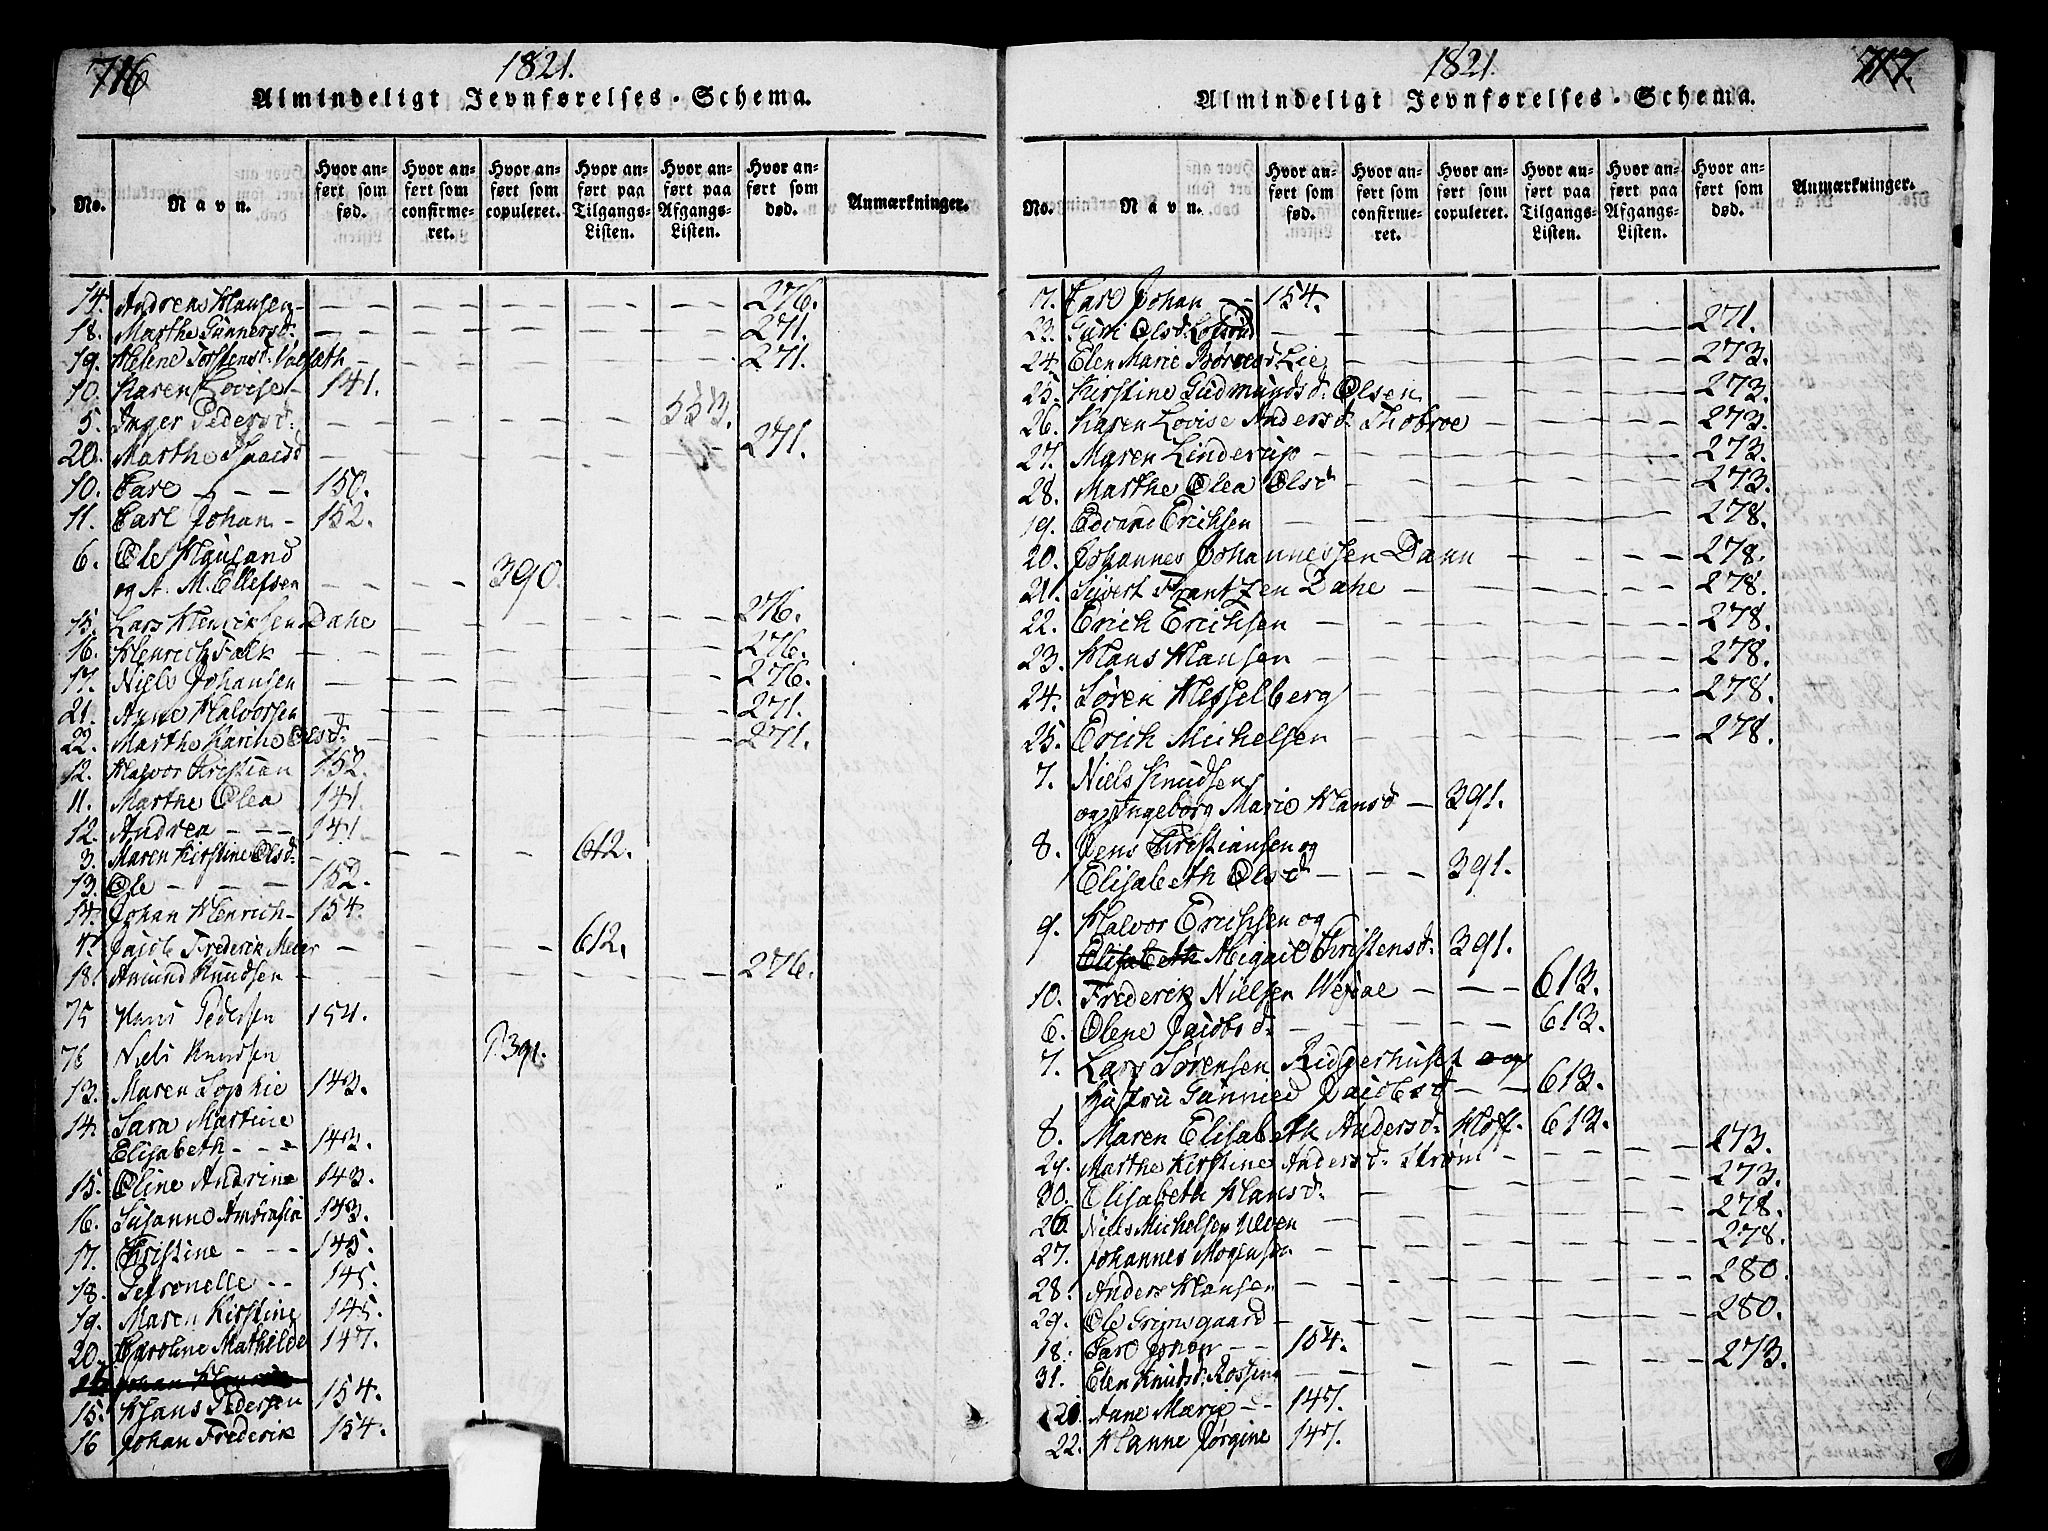 716
1821.
Almindeligt Jevnførelses-Schema.
No.
Navn.
Hvor anført som fød.
Hvor anført som confirmeret.
Hvor anført som copuleret.
Hvor anført paa Tilgangs-Listen.
Hvor anført paa Afgangs-Listen.
Hvor anført som død.
Anmærkninger.
14. Andreas Hansen - - - - - 276.
18. Marthe Gunnersd: - - - - - 271.
19. Helene Torstensd: Valseth - - - - 271.
10. Karen Lovise - 141.
5. Inger Pedersd: - - - - 553.
20. Marthe Isaacsd - - - - - 271.
10. Carl - - - 150.
11. Carl Johan - 152.
6. Ole Hauland
og A. M. Ellefsen - - - 390.
15. Lars Henriksen Dahe - - - - 276.
16. Henrich Falk - - - - - 276.
17. Niels Johansen - - - - - 276.
21. Anne Halvorsen - - - - - 271.
22. Marthe Karine Olsd: - - - - 271.
12. Halvor Kristian 152.
11. Marthe Olea 141.
12. Andrea - - - 141.
3. Maren Kirstine Olsd: - - - 612.
13. Ole - - - 152.
14. Johan Henrich - 154.
4. Jacob Frederik Meier - - - 612.
18. Amund Knudsen - - - - - 276.
75 Hans Pedersen 154.
76 Niels Knudsen P. 391.
13. Maren Sophie 143.
14. Sara Martine
Elisabeth - - - 143.
15. Oline Andrine 143.
16. Susanne Ambrosia 143.
17. Christine - - - 145.
18. Petronelle - - 145.
19. Maren Kirstine 145.
20. Caroline Mathilde 147.
Johan Henrich
15. Hans Pedersen 154.
16 Johan Frederik 154.
717.
1821.
Almindeligt Jevnførelses-Schema.
No.
Navn.
Hvor anført som fød.
Hvor anført som confirmeret.
Hvor anført som copuleret.
Hvor anført paa Tilgangs-Listen.
Hvor anført paa Afgangs-Listen.
Hvor anført som død.
Anmærkninger.
17. Carl Johan - 154.
23. Guri Olsd: - - - - - 271.
24. Elen Marie Lie - - - - 273.
25. Kirstine Gudmundsd: Olsen - - - 273.
26. Karen Lovise Andersd: Thobroe - - - 273.
27. Maren Linderup - - - - - 273.
28. Marthe Olea Olsd - - - - 273.
19. Edvard Erichsen - - - - - 278.
20. Johannes Johannessen Dann - - - 278.
21. Sivert Frantzen Dahe - - - 278.
22. Erich Erichsen - - - - - 278.
23. Hans Hansen - - - - - 278.
24. Søren Hesselberg - - - - 278.
25. Erich Michelsen - - - - 278.
7. Niels Knudsen
og Ingeborg Marie Hansd - 391.
8. Jens Christiansen og
Elisabeth Olsd - - - 391.
9. Halvor Erichsen og
Elisabeth Abigail Christensd: 391.
10. Frederik Nielsen - - - 613.
6. Olene Jacobsd: - - - - 613.
7. Lars Sørensen Ridgerhuset og
Hustru Gunnild Jacobsd - - 613.
8. Maren Elisabeth Andersd: Hoff. 613.
29. Marthe Kirstine Andersd: Strøm - - - 273.
30. Elisabeth Hansd: - - - - 273.
26. Niels Michelsen Ulven - - - - - 278.
27. Johannes Mogensen - - - - - 278.
28. Anders Hansen - - - - - 280.
29. Ole Grijnsgaard - - - - - 280.
18. Carl Johan - - 154.
31. Elen Knudsd: Rossing - - - - - 273.
21. Anne Marie - - 147.
22. Hanne Jørgine 147.